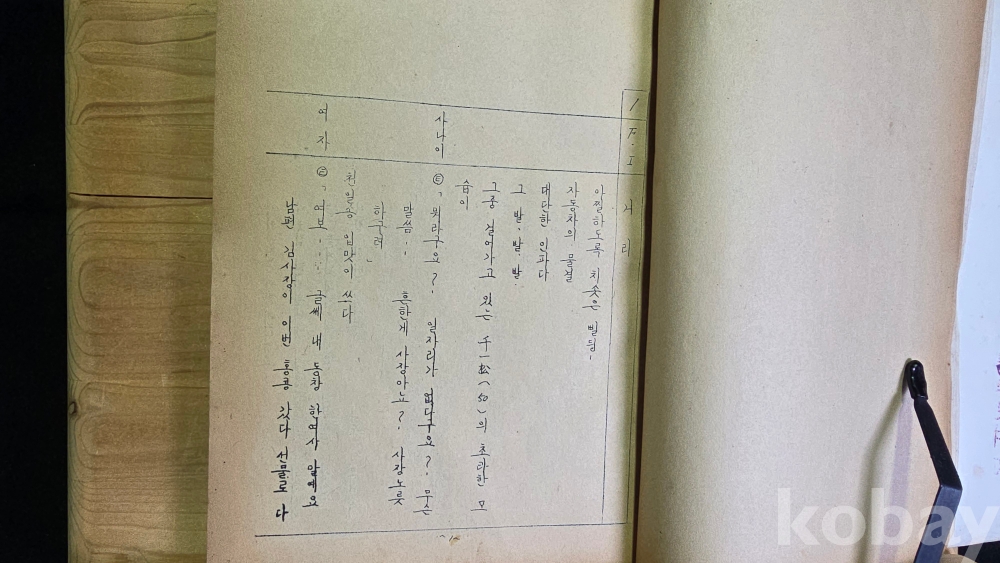 1 F.I 거리
아찔하도록 치솟은 빌딩.
자동차의 물결
대단한 인파다
그 발.발.발.
그중 걸어가고 있는 千一松(50)의 초라한 모
습이
사나이 Ⓔ「뭐라구요?. 일자리가 없다구요?. 무슨
말씀. 흔한게 사장아뇨?. 사장노릇
하구려」
천일송 입맛이 쓰다
여자 Ⓔ「여보... 글쎄 내 동창 하여사 알에요
남편 김사장이 이번 홍콩 갔다 선물로 다
-1-
kobay